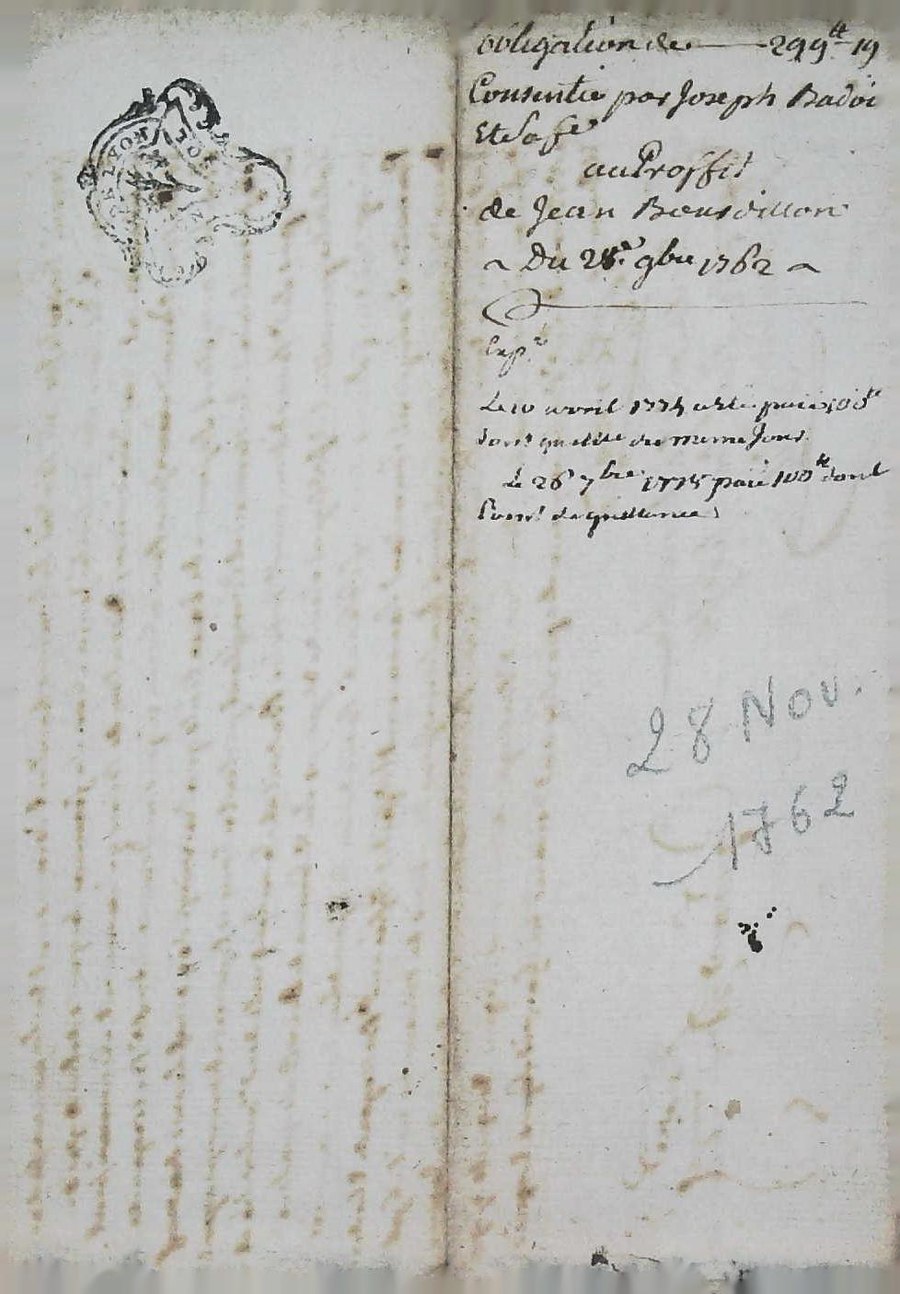 obligation de 299ᵗᵗ 19
Consentie par Joseph Badoi
Et Sa fe
au Proffit
de Jean Bourdillon
Du 28e 9bre 1762
Expe
Le 10 avril 1774 a été paié 100ᵗᵗ
dont quitte du meme Jour
Le 26 7bre 1775 paié 100ᵗᵗ dont
de quittance
28 Nov.
1762